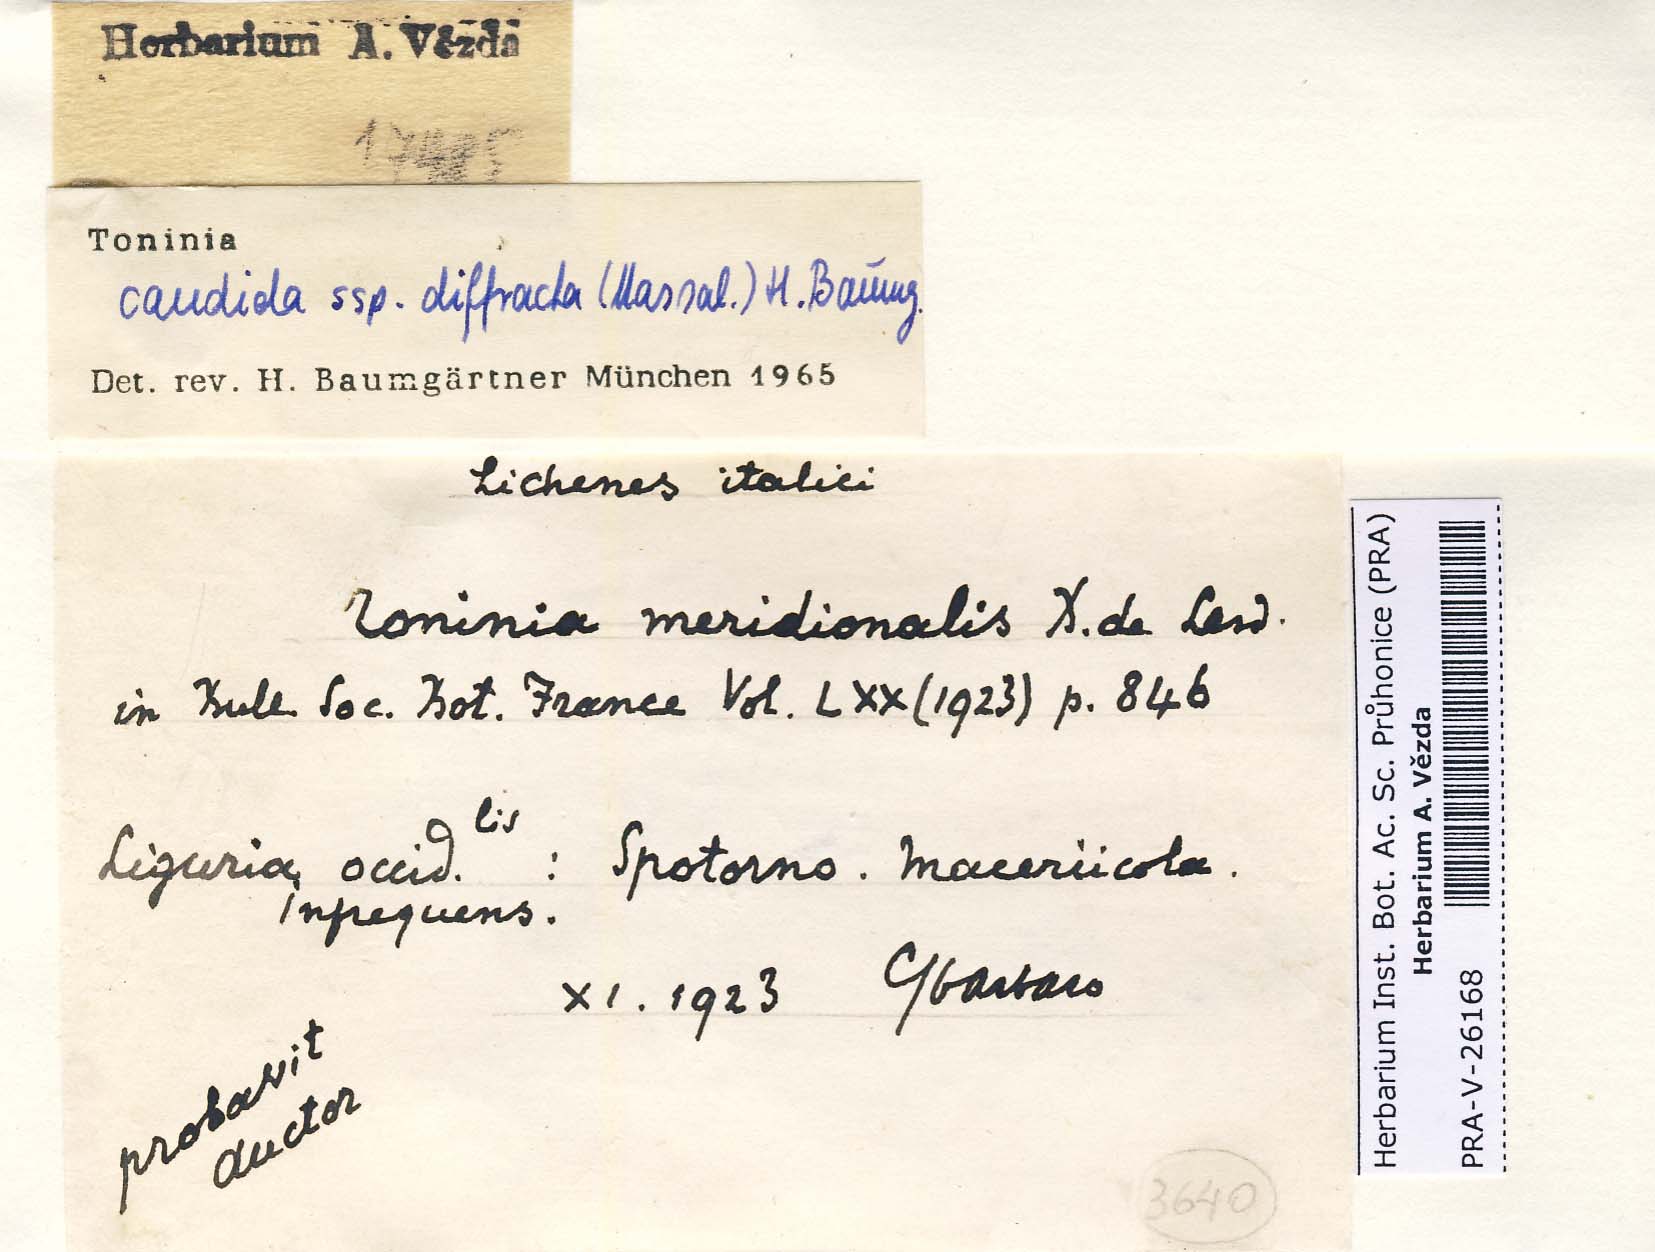 Herbarium A. Vězda
Toninia
candida ssp. diffracta (Massal.) H. Baumg.
Det. rev. H. Baumgärtner München 1965
Lichenes italici
Toninia meridionalis B. de Lesd.
in Bull. Soc. Bot. France Vol. LXX (1923) p. 846
Liguria occid.lis : Spotorno. Maceriicola.
infrequens.
XI. 1923 C Sbarbaro
probavit
auctor
3640
Herbarium Inst. Bot. Ac. Sc. Průhonice (PRA)
Herbarium A. Vězda
PRA-V-26168